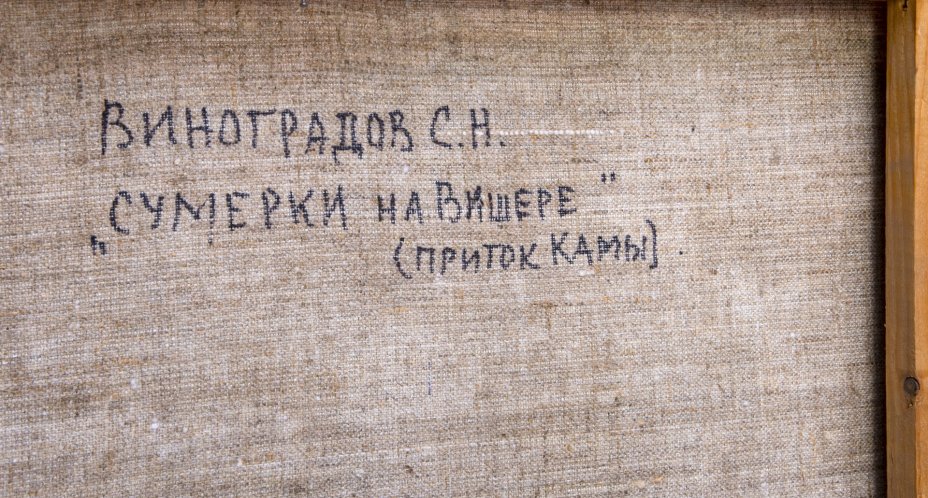 ВИНОГРАДОВ С.Н.
„СУМЕРКИ НА ВИШЕРЕ"
(ПРИТОК КАМЫ).